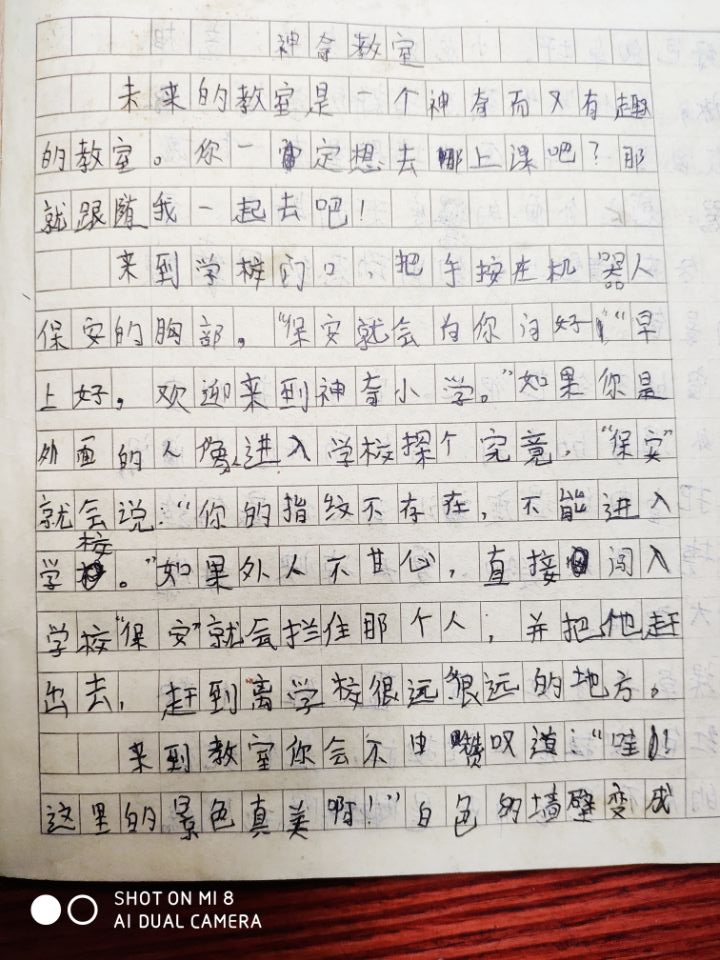 神奇教室
未来的教室是一个神奇而又有趣
的教室。你一定想去哪上课吧？那
就跟随我一起去吧！
来到学校门口，把手按在机器人
保安的胸部，“保安就会为你问好！“早
上好，欢迎来到神奇小学。”如果你是
外面的人想进入学校探个究竟，“保安”
就会说：“你的指纹不存在，不能进入
学校。”如果外人不甘心，直接闯入
学校“保安”就会拦住那个人，并把他赶
出去，赶到离学校很远很远的地方。
来到教室你会不由赞叹道：“哇！
这里的景色真美啊！”白色的墙壁变成
SHOT ON MI 8
AI DUAL CAMERA